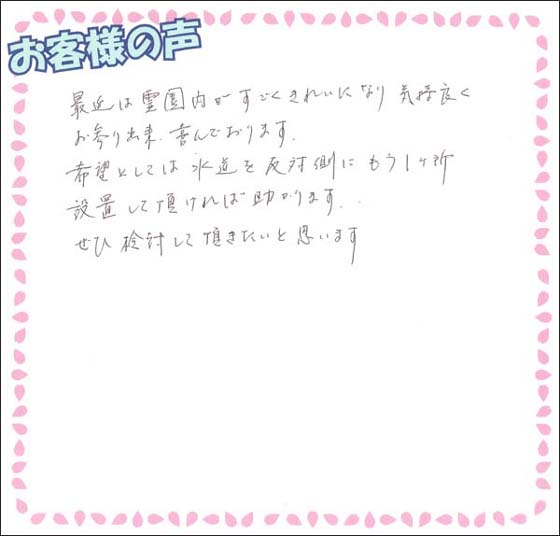 お客様の声
最近は霊園内がすごくきれいになり 気持良く
お参り出来、喜んでおります.
希望としては 水道を反対側にもう1ヶ所
設置して頂ければ助かります..
ぜひ 検討して頂きたいと思います